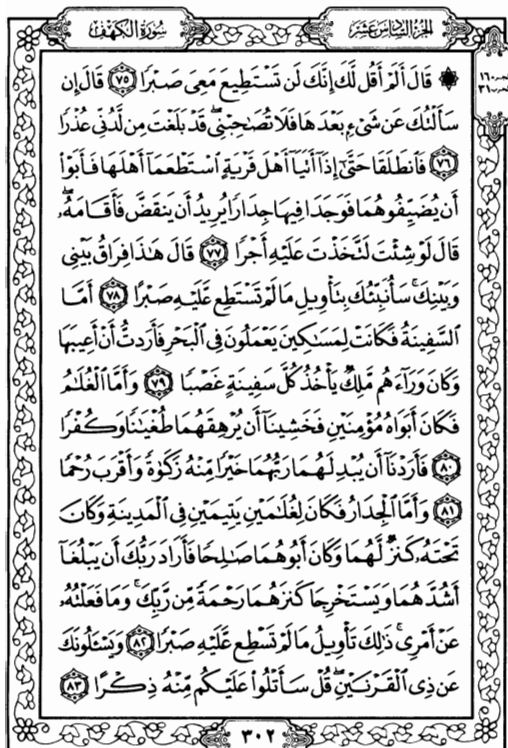 الجزء السادس عشر
سورة الكهف
۞ قَالَ أَلَمْ أَقُل لَّكَ إِنَّكَ لَن تَسْتَطِيعَ مَعِيَ صَبْرًا ٧٥ قَالَ إِن
سَأَلْتُكَ عَن شَيْءٍ بَعْدَهَا فَلَا تُصَاحِبْنِي ۖ قَدْ بَلَغْتَ مِن لَّدُنِّي عُذْرًا
٧٦ فَانطَلَقَا حَتَّىٰ إِذَا أَتَيَا أَهْلَ قَرْيَةٍ اسْتَطْعَمَا أَهْلَهَا فَأَبَوْا
أَن يُضَيِّفُوهُمَا فَوَجَدَا فِيهَا جِدَارًا يُرِيدُ أَن يَنقَضَّ فَأَقَامَهُ ۖ
قَالَ لَوْ شِئْتَ لَتَّخَذْتَ عَلَيْهِ أَجْرًا ٧٧ قَالَ هَٰذَا فِرَاقُ بَيْنِي
وَبَيْنِكَ ۚ سَأُنَبِّئُكَ بِتَأْوِيلِ مَا لَمْ تَسْتَطِع عَّلَيْهِ صَبْرًا ٧٨ أَمَّا
السَّفِينَةُ فَكَانَتْ لِمَسَاكِينَ يَعْمَلُونَ فِي الْبَحْرِ فَأَرَدتُّ أَنْ أَعِيبَهَا
وَكَانَ وَرَاءَهُم مَّلِكٌ يَأْخُذُ كُلَّ سَفِينَةٍ غَصْبًا ٧٩ وَأَمَّا الْغُلَامُ
فَكَانَ أَبَوَاهُ مُؤْمِنَيْنِ فَخَشِينَا أَن يُرْهِقَهُمَا طُغْيَانًا وَكُفْرًا
٨٠ فَأَرَدْنَا أَن يُبْدِلَهُمَا رَبُّهُمَا خَيْرًا مِّنْهُ زَكَاةً وَأَقْرَبَ رُحْمًا
٨١ وَأَمَّا الْجِدَارُ فَكَانَ لِغُلَامَيْنِ يَتِيمَيْنِ فِي الْمَدِينَةِ وَكَانَ
تَحْتَهُ كَنزٌ لَّهُمَا وَكَانَ أَبُوهُمَا صَالِحًا فَأَرَادَ رَبُّكَ أَن يَبْلُغَا
أَشُدَّهُمَا وَيَسْتَخْرِجَا كَنزَهُمَا رَحْمَةً مِّن رَّبِّكَ ۚ وَمَا فَعَلْتُهُ
عَنْ أَمْرِي ۚ ذَٰلِكَ تَأْوِيلُ مَا لَمْ تَسْطِع عَّلَيْهِ صَبْرًا ٨٢ وَيَسْأَلُونَكَ
عَن ذِي الْقَرْنَيْنِ ۖ قُلْ سَأَتْلُو عَلَيْكُم مِّنْهُ ذِكْرًا ٨٣
٣٠٢